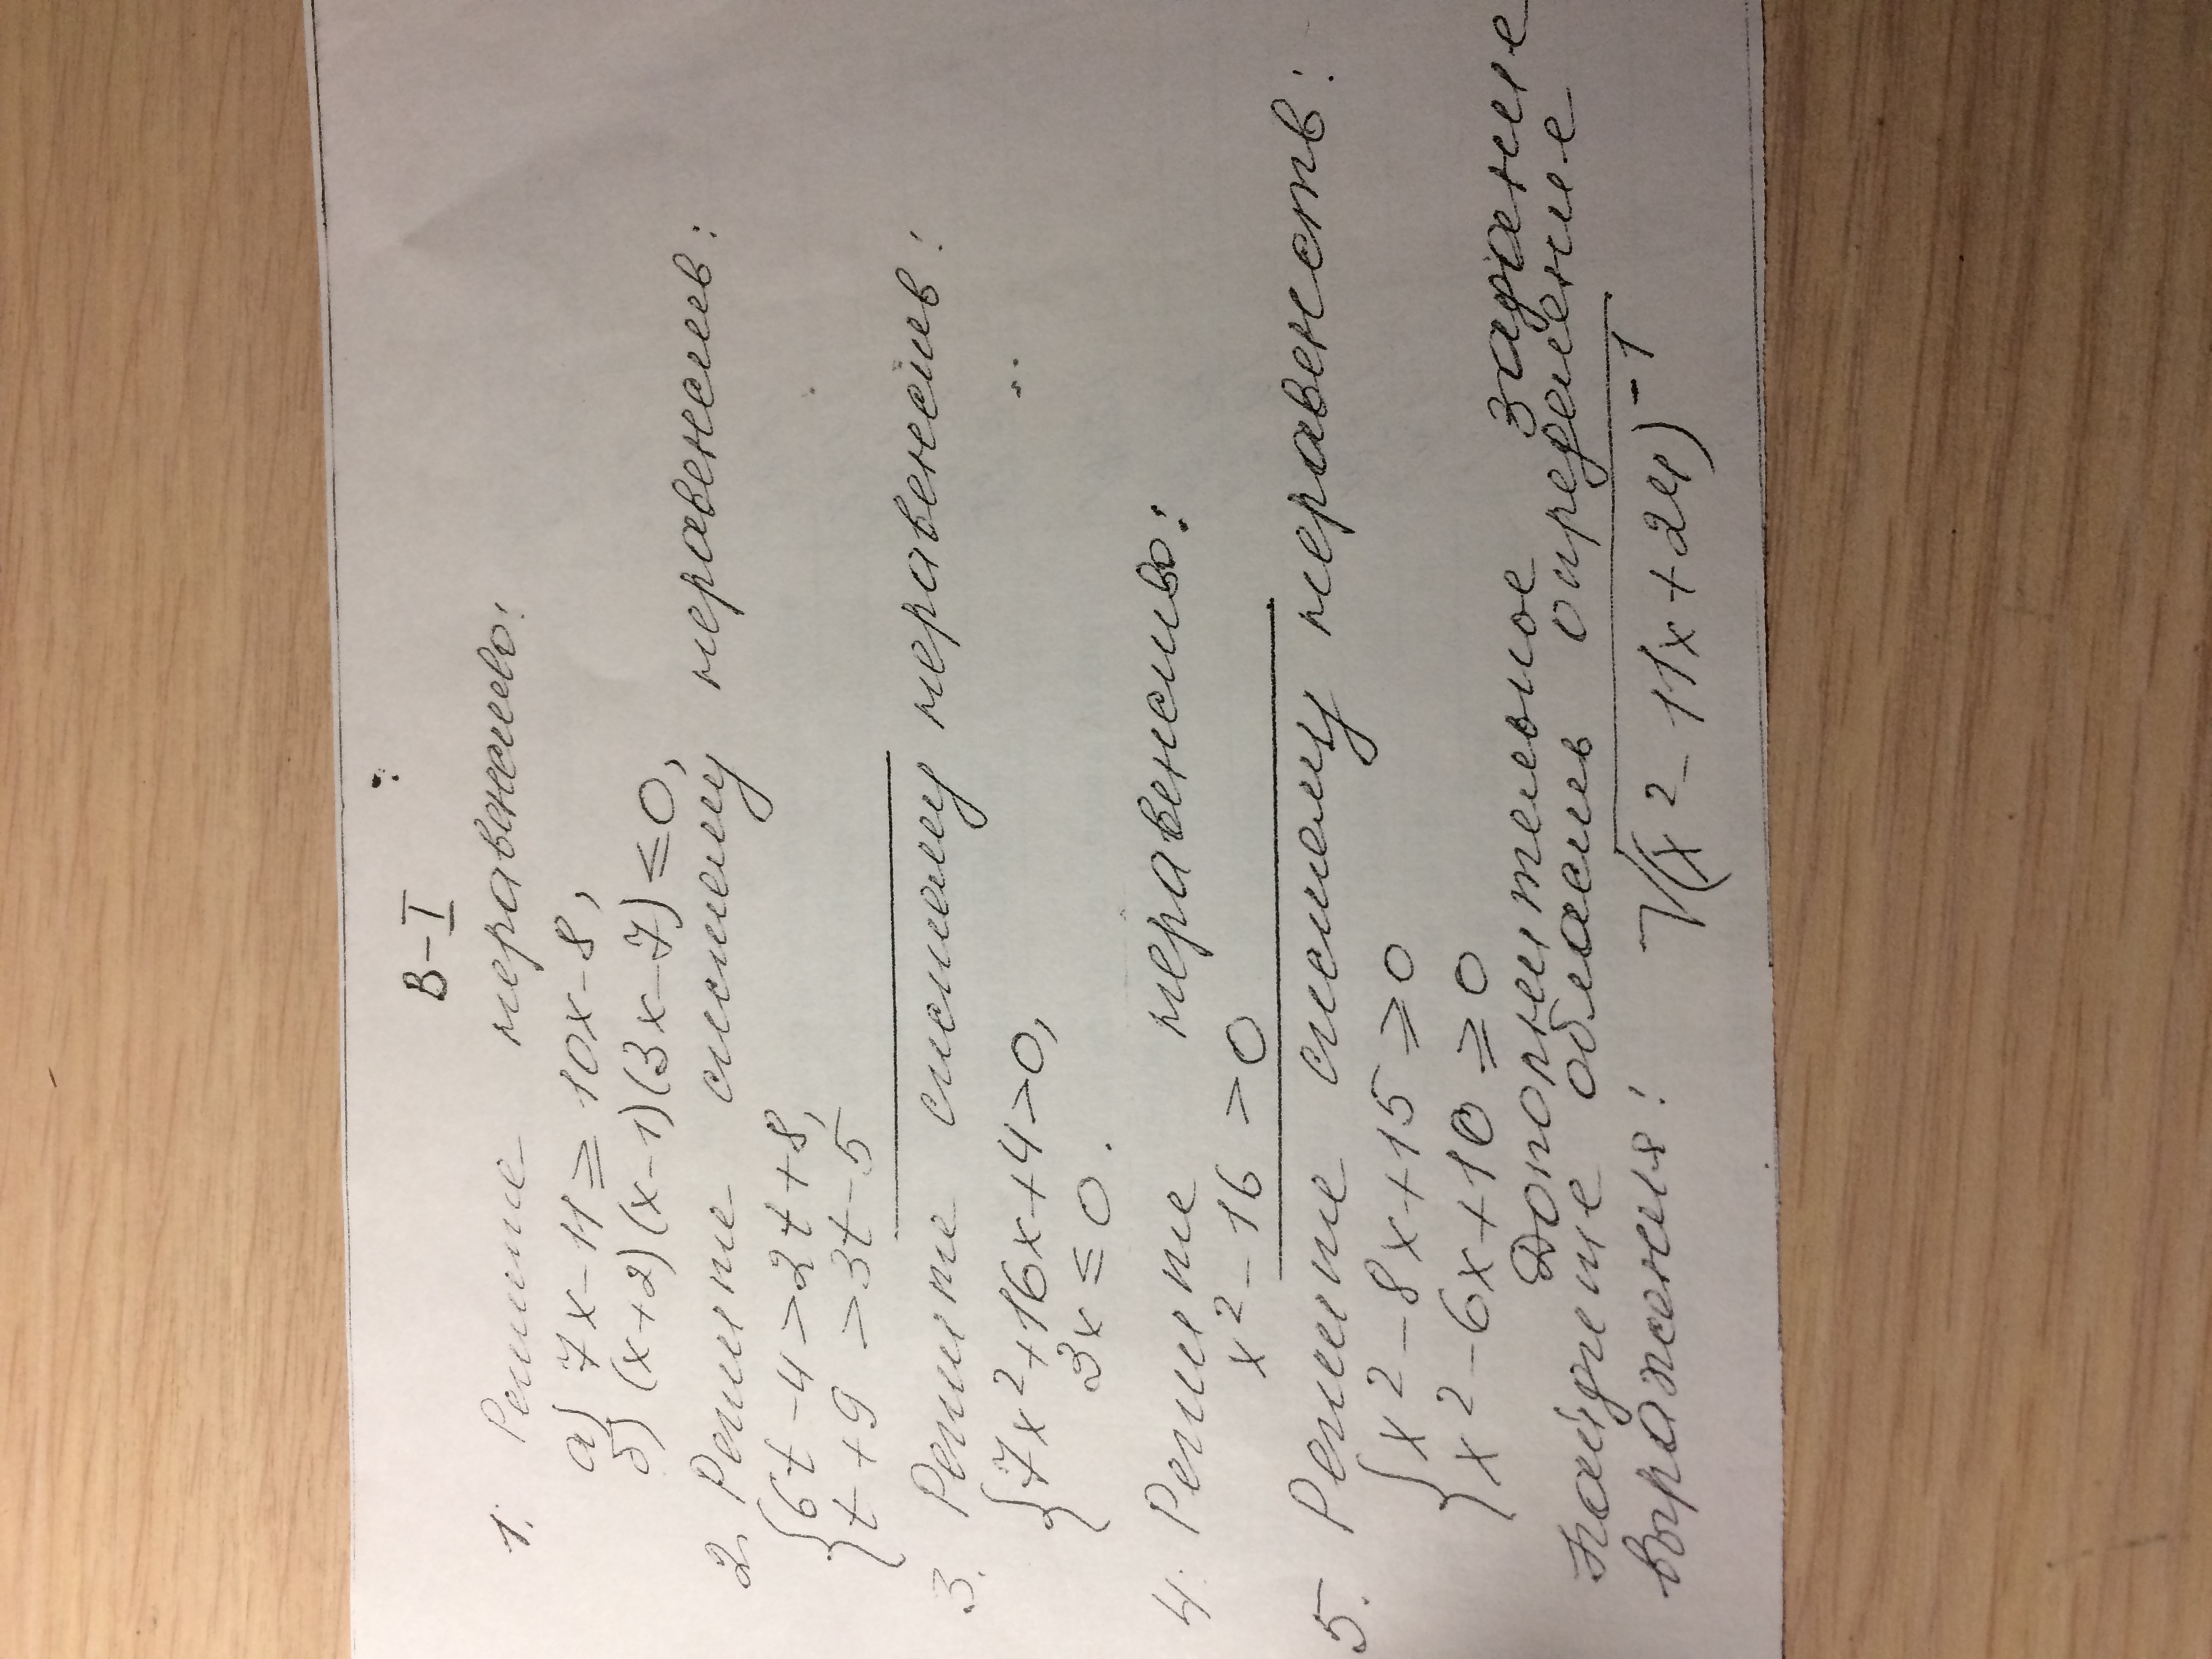 В-I
1. Решите неравенство:
а) 7x-11 ≥ 10x-8,
б) (x+2)(x-1)(3x-7) ≤ 0,
2. Решите систему неравенств:
{6t-4 > 2t+8,
t+9 > 3t-5
3. Решите систему неравенств:
{7x²+16x+4 > 0,
3x ≤ 0.
4. Решите неравенство:
x²-16 > 0
5. Решите систему неравенств:
{x²-8x+15 ≥ 0
x²-6x+10 ≥ 0
Дополнительное задание
Найдите область определение
выражения: √(x²-11x+24)⁻¹